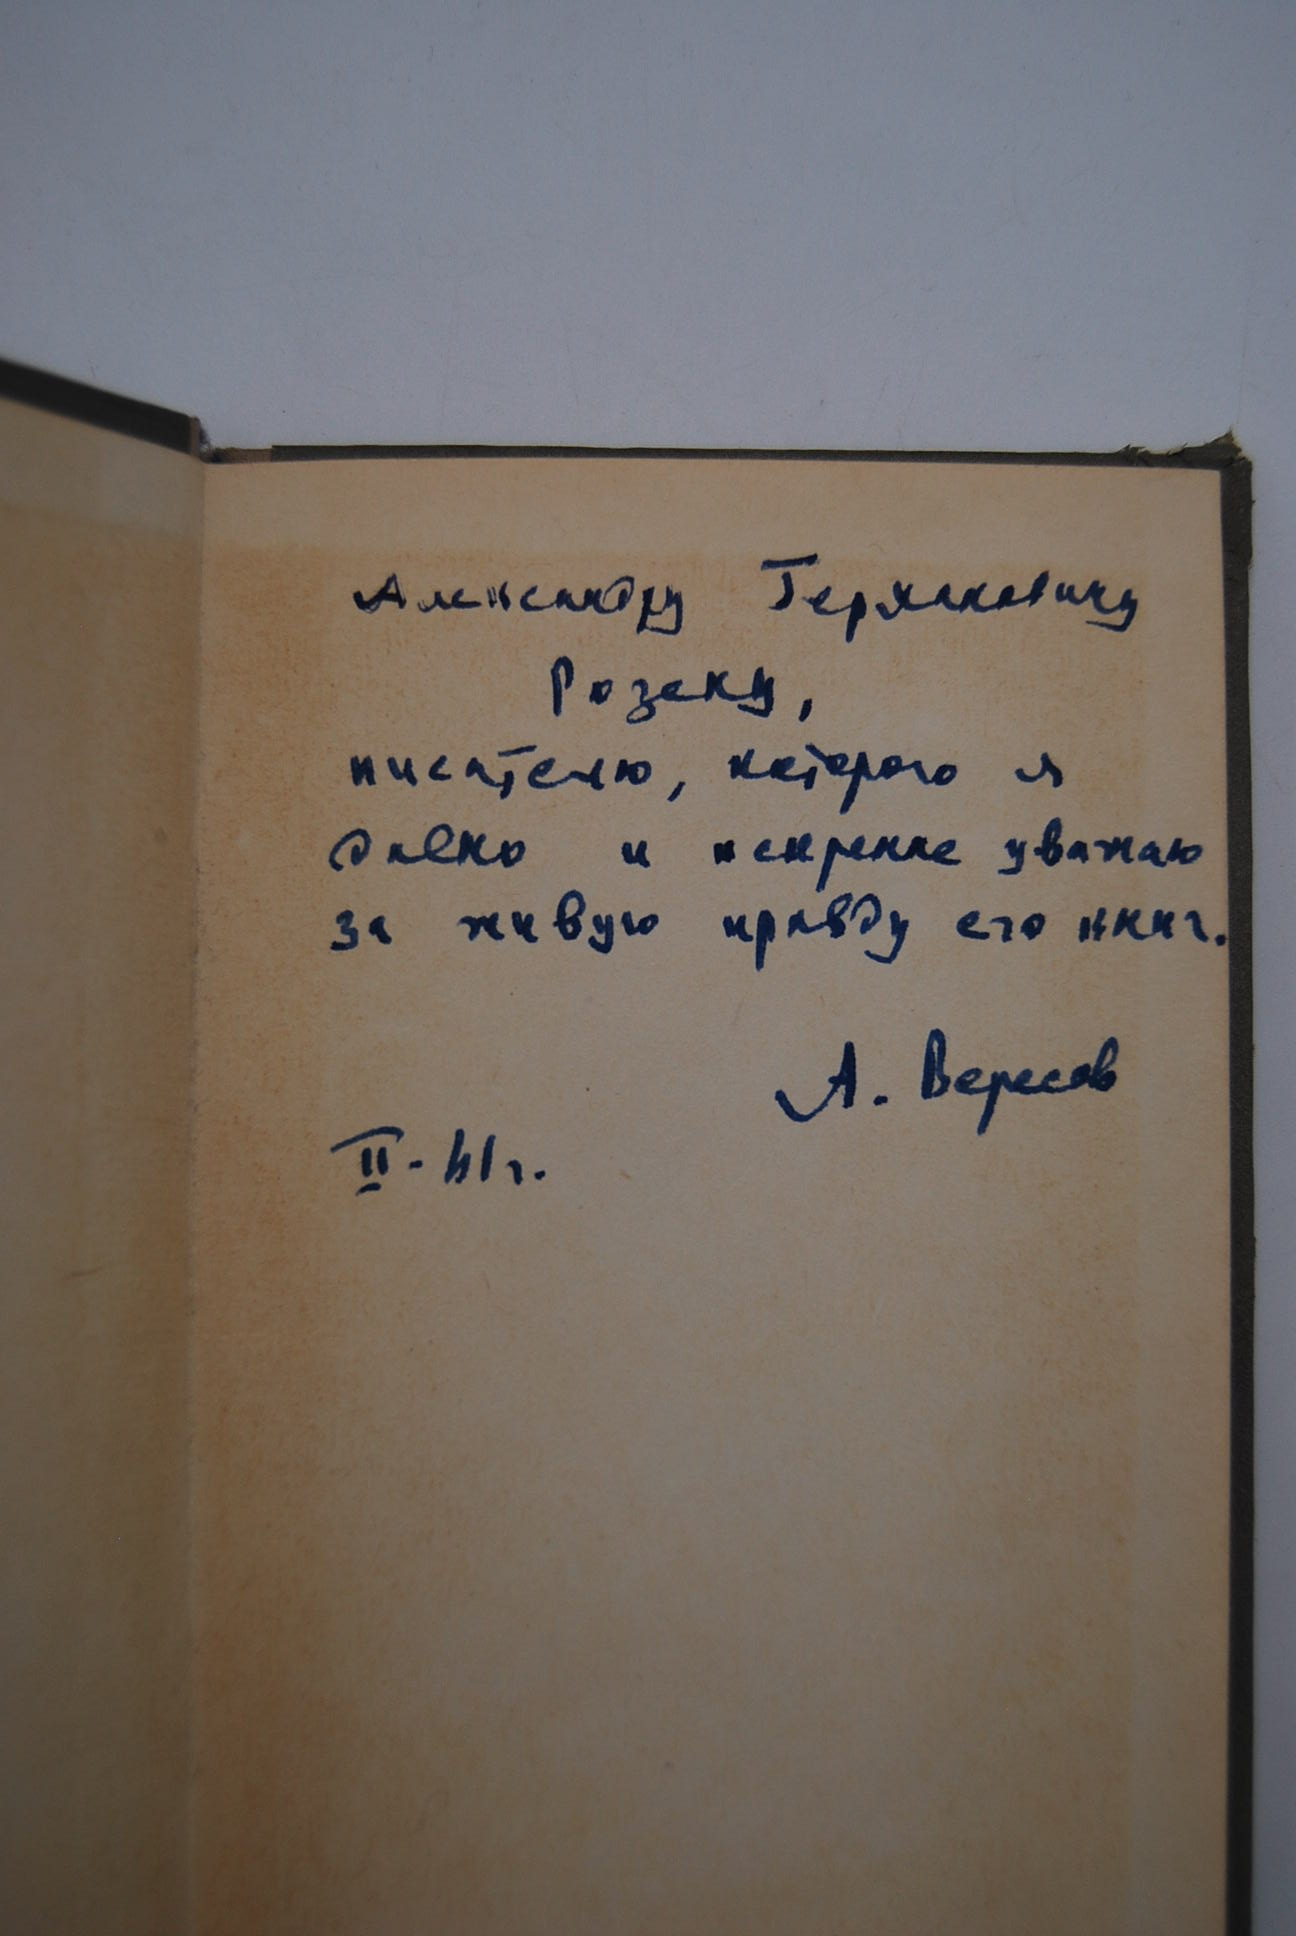 Александру Германовичу
Розену,
писателю, которого я
давно и искренне уважаю
за живую правду его книг.
А. Вересов
II-61г.